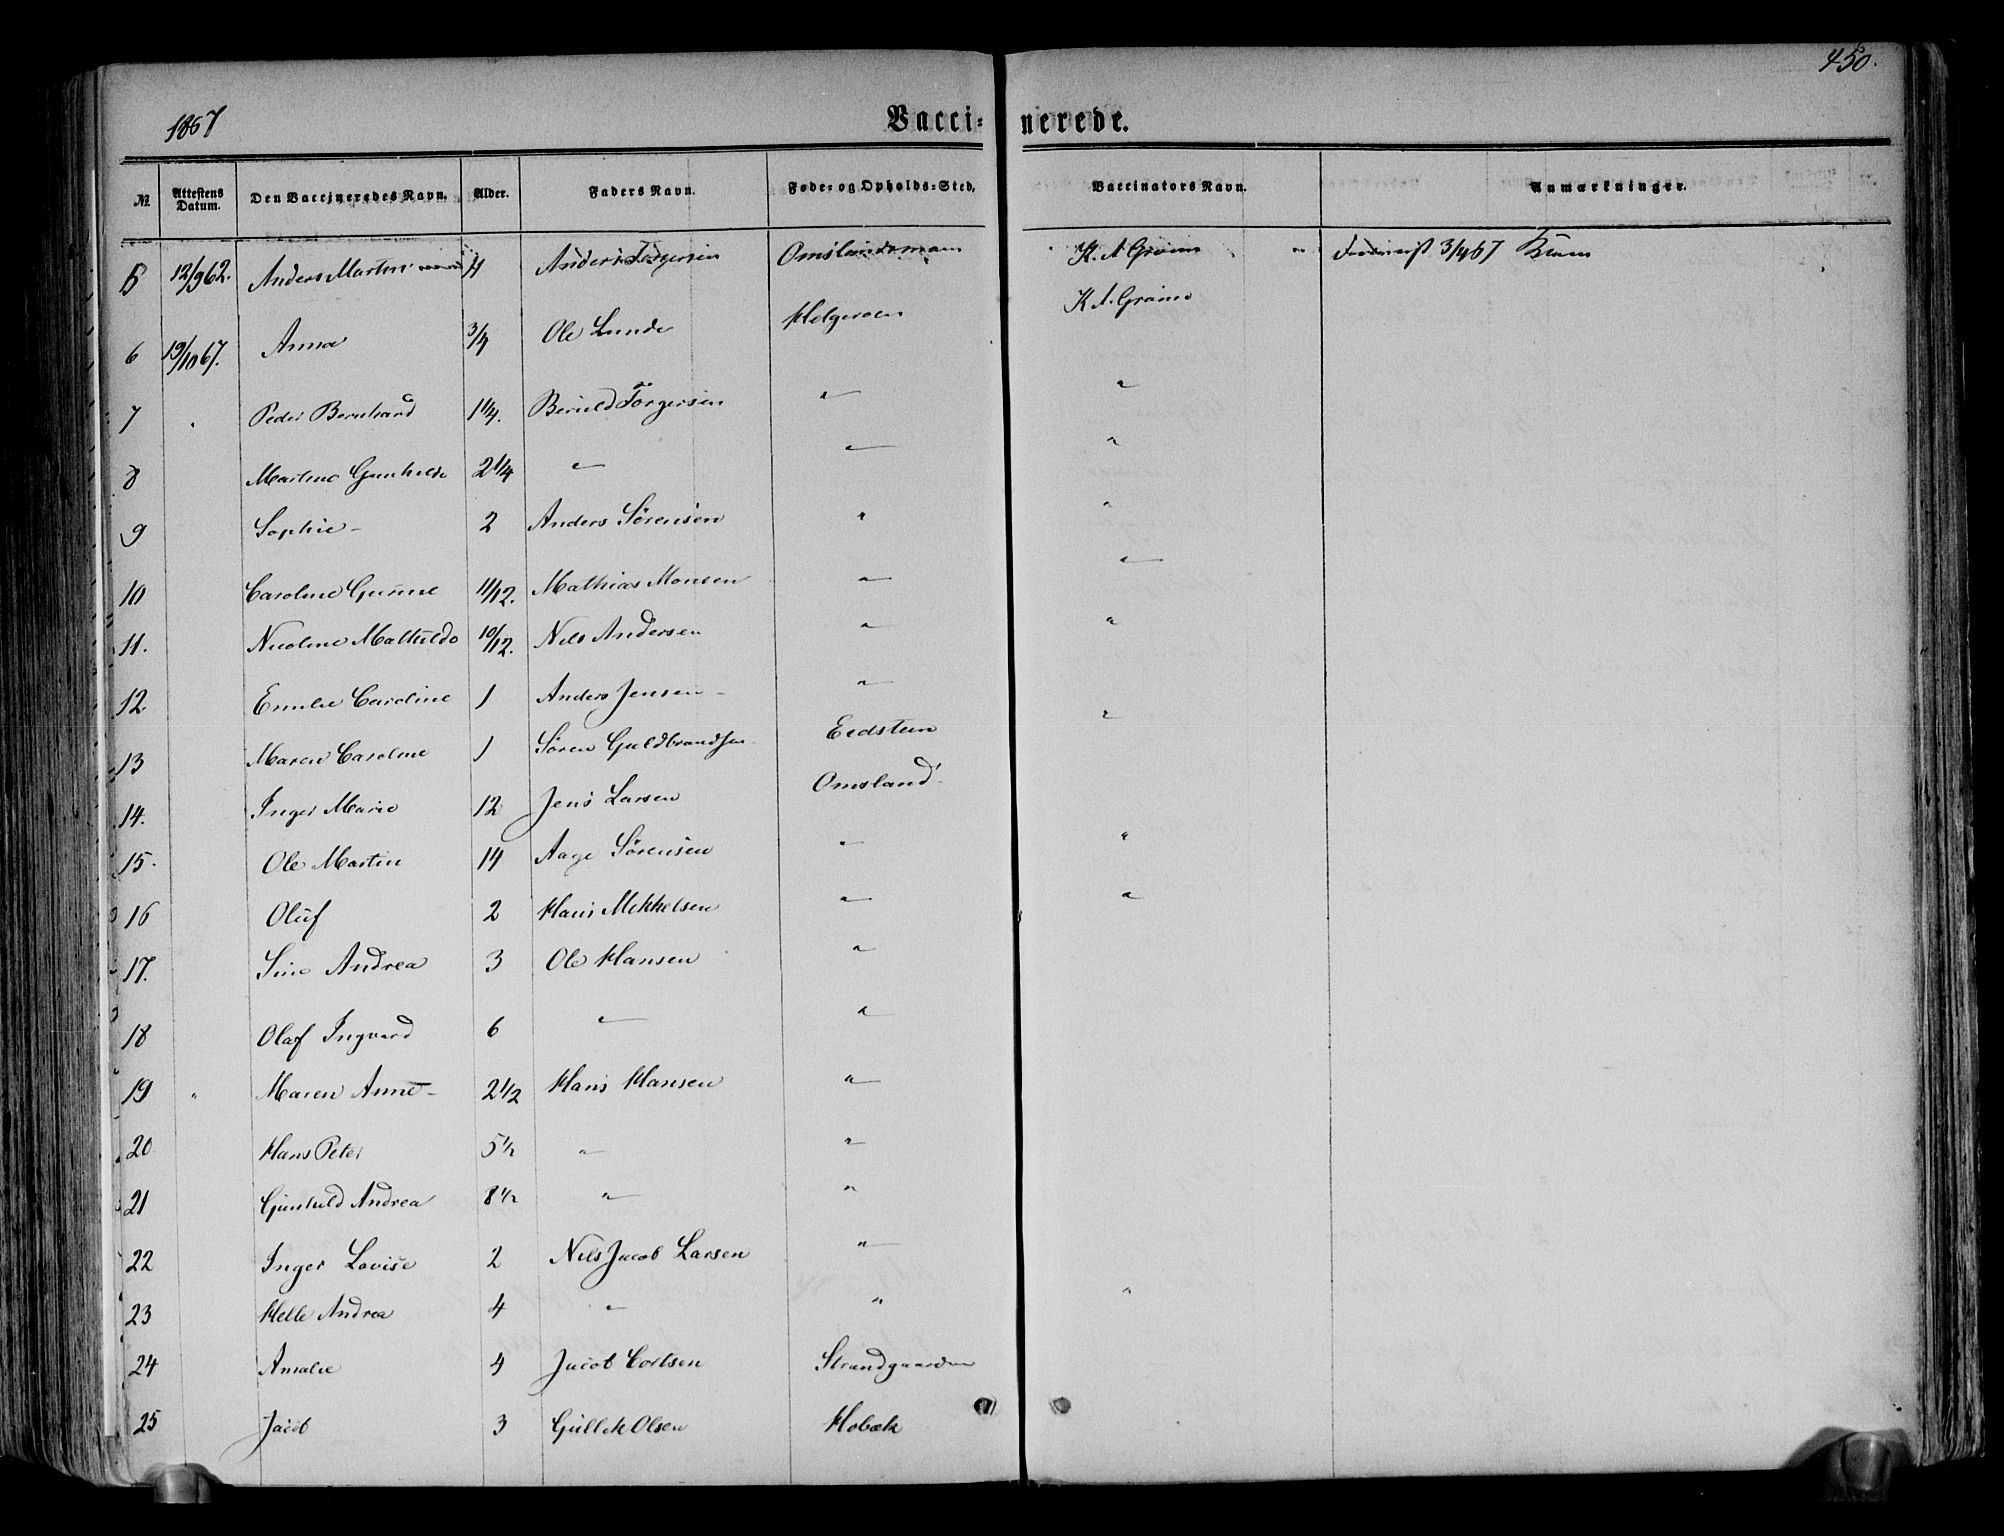 450.
1867
Vaccinerede.
№ Attestens Datum. Den Vaccineredes Navn. Alder. Faders Navn. Føde- og Opholds-Sted. Vaccinators Navn. Anmærkninger.
5 12/9 62. Anders Martin 4 Anders Torgersen K. A. Grønn 3/4 67
6 19/10 67. Anna 3/4 Ole Lunde Helgeroen K A. Grønn
7 Peder Bernhard 1 1/4. Torgersen " "
8 Martine Gunhilde 2 1/4 " " "
9 Sophie 2 Anders Sørensen " "
10 Caroline Gurine 11/12. Mathias Monsen " "
11. Nicoline Mathilde 10/12. Nils Andersen " "
12. Emilie Caroline 1 Anders Jensen "
13 Maren Caroline 1 Søren Guldbrandsen Eedsteen "
14. Inger Marie 12 Jens Larsen Omsland
15. Ole Martin 14 Aage Sørensen " "
16 Oluf 2 Hans Mikkelsen " "
17. Sine Andrea 3 Ole Hansen "
18 Olaf Ingvard 6 " "
19 " Maren Anne 2 1/2 Hans Hansen "
20 Hans Peter 5 1/2 " "
21 Gunhild Andrea 8 1/2 " "
22 Inger Lovise 2 Nils Jacob Larsen "
23 Helle Andrea 4 " " "
24 Amalie 4 Jacob Cortsen Strandgaarden
25 Jacob 3 Gullek Olsen Hobæk